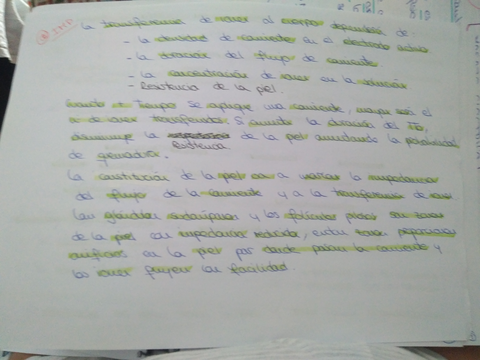 La transferencia de iones al cuerpo dependerá de:
- la densidad de corriente en el electrodo activo
- la duración del flujo de corriente
- la concentración de iones en la solución
- Resistencia de la piel.
Cuando + tiempo se aplique una corriente, mayor será el
nº de iones transferidos. Si aumenta la duración del tto,
disminuye la resistencia de la piel aumentando la posibilidad
de quemadura.
La constitución de la piel va a variar la impedancia
del flujo de la corriente y a la transferencia de iones
Las glándulas sudoríparas y los folículos pilosos son zonas
de la piel con impedancia reducida, estas zonas
en la piel por donde pasan la corriente y
los iones fluyen con facilidad